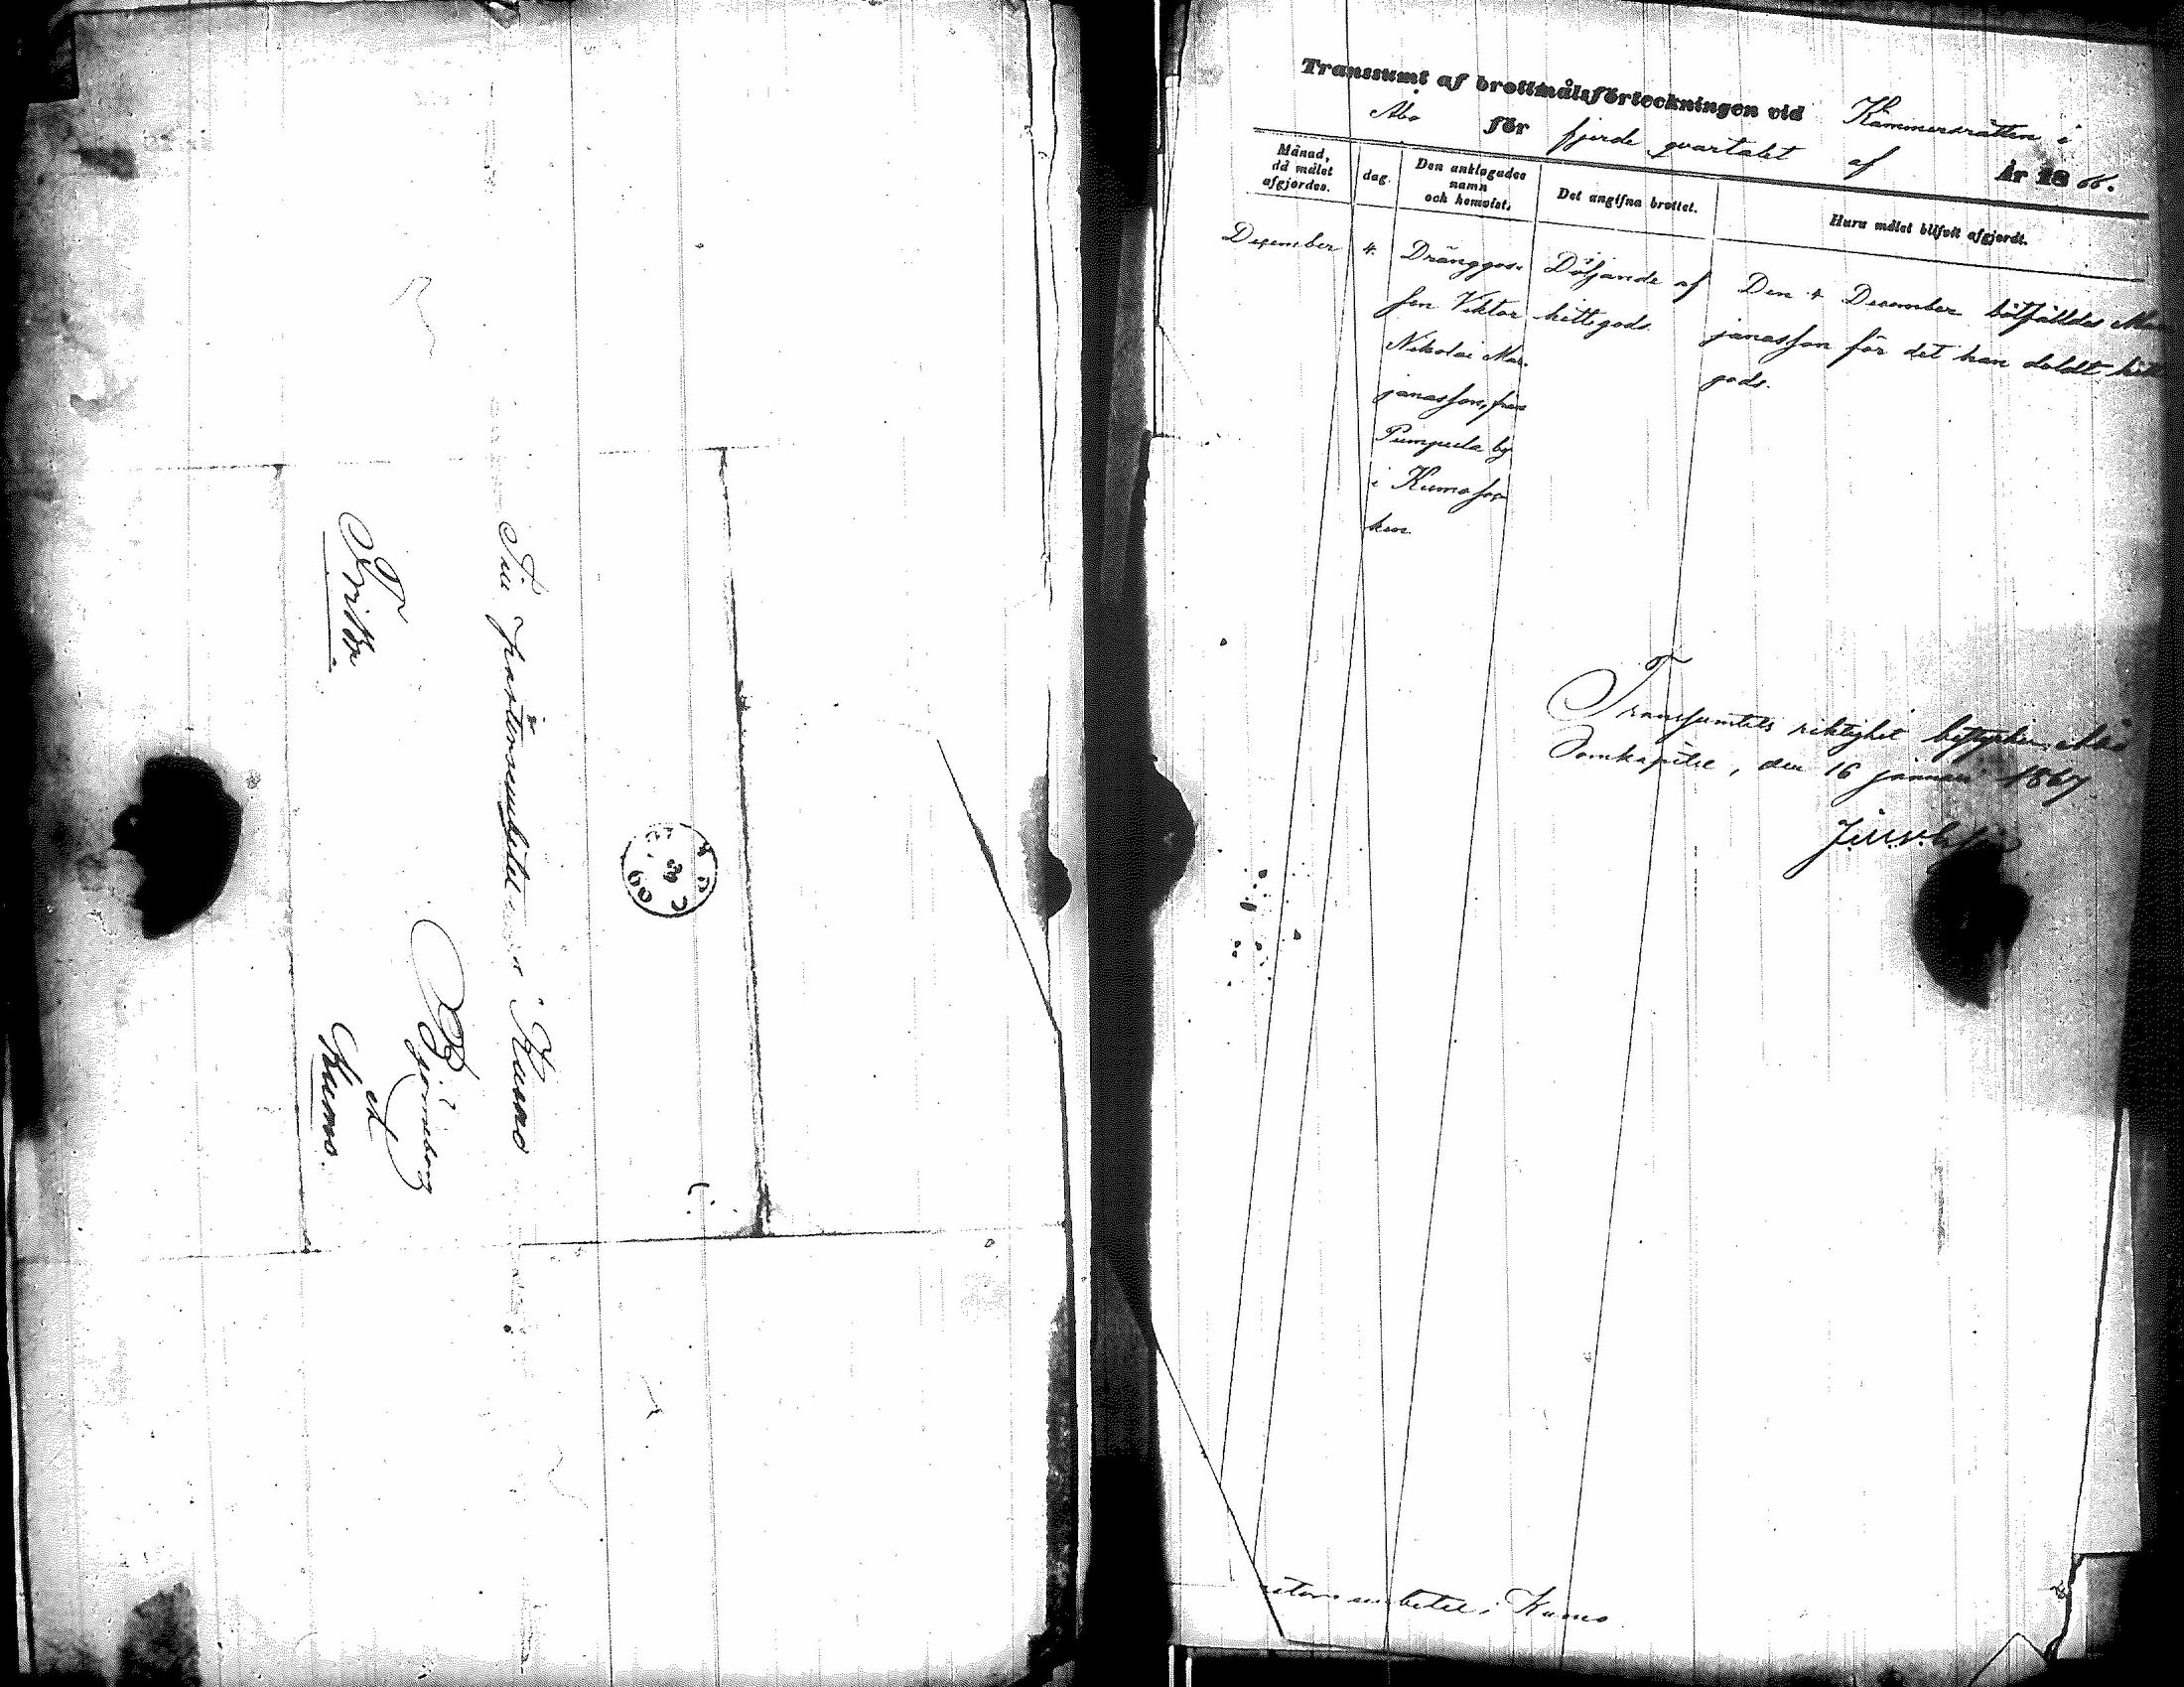 Till pastorsembetet i Kumo
Björneborg
et
Kumo.
Fritt.
Transsumt af brottmålsförteckningen vid Kämnersrätten i
Åbo för fjerde qvartalet af År 1866.
Månad, då målet afgjordes.
dag.
Den anklagades namn och hemvist.
Det angifna brottet.
Huru målet blifvit afgjordt.
December 4. Dränggos- Döljande af Den 4 December bötfälldes Mar
sen Viktor hittegods. janasson för det han doldt hitt
Nikolai Mar- gods.
janasson, från
Pumpula by
i Kumo soc-
ken
Transsumtets riktighet bestyrker, Åbo
Domkapitel, den 16 januari 1867.
storsembetet i Kumo